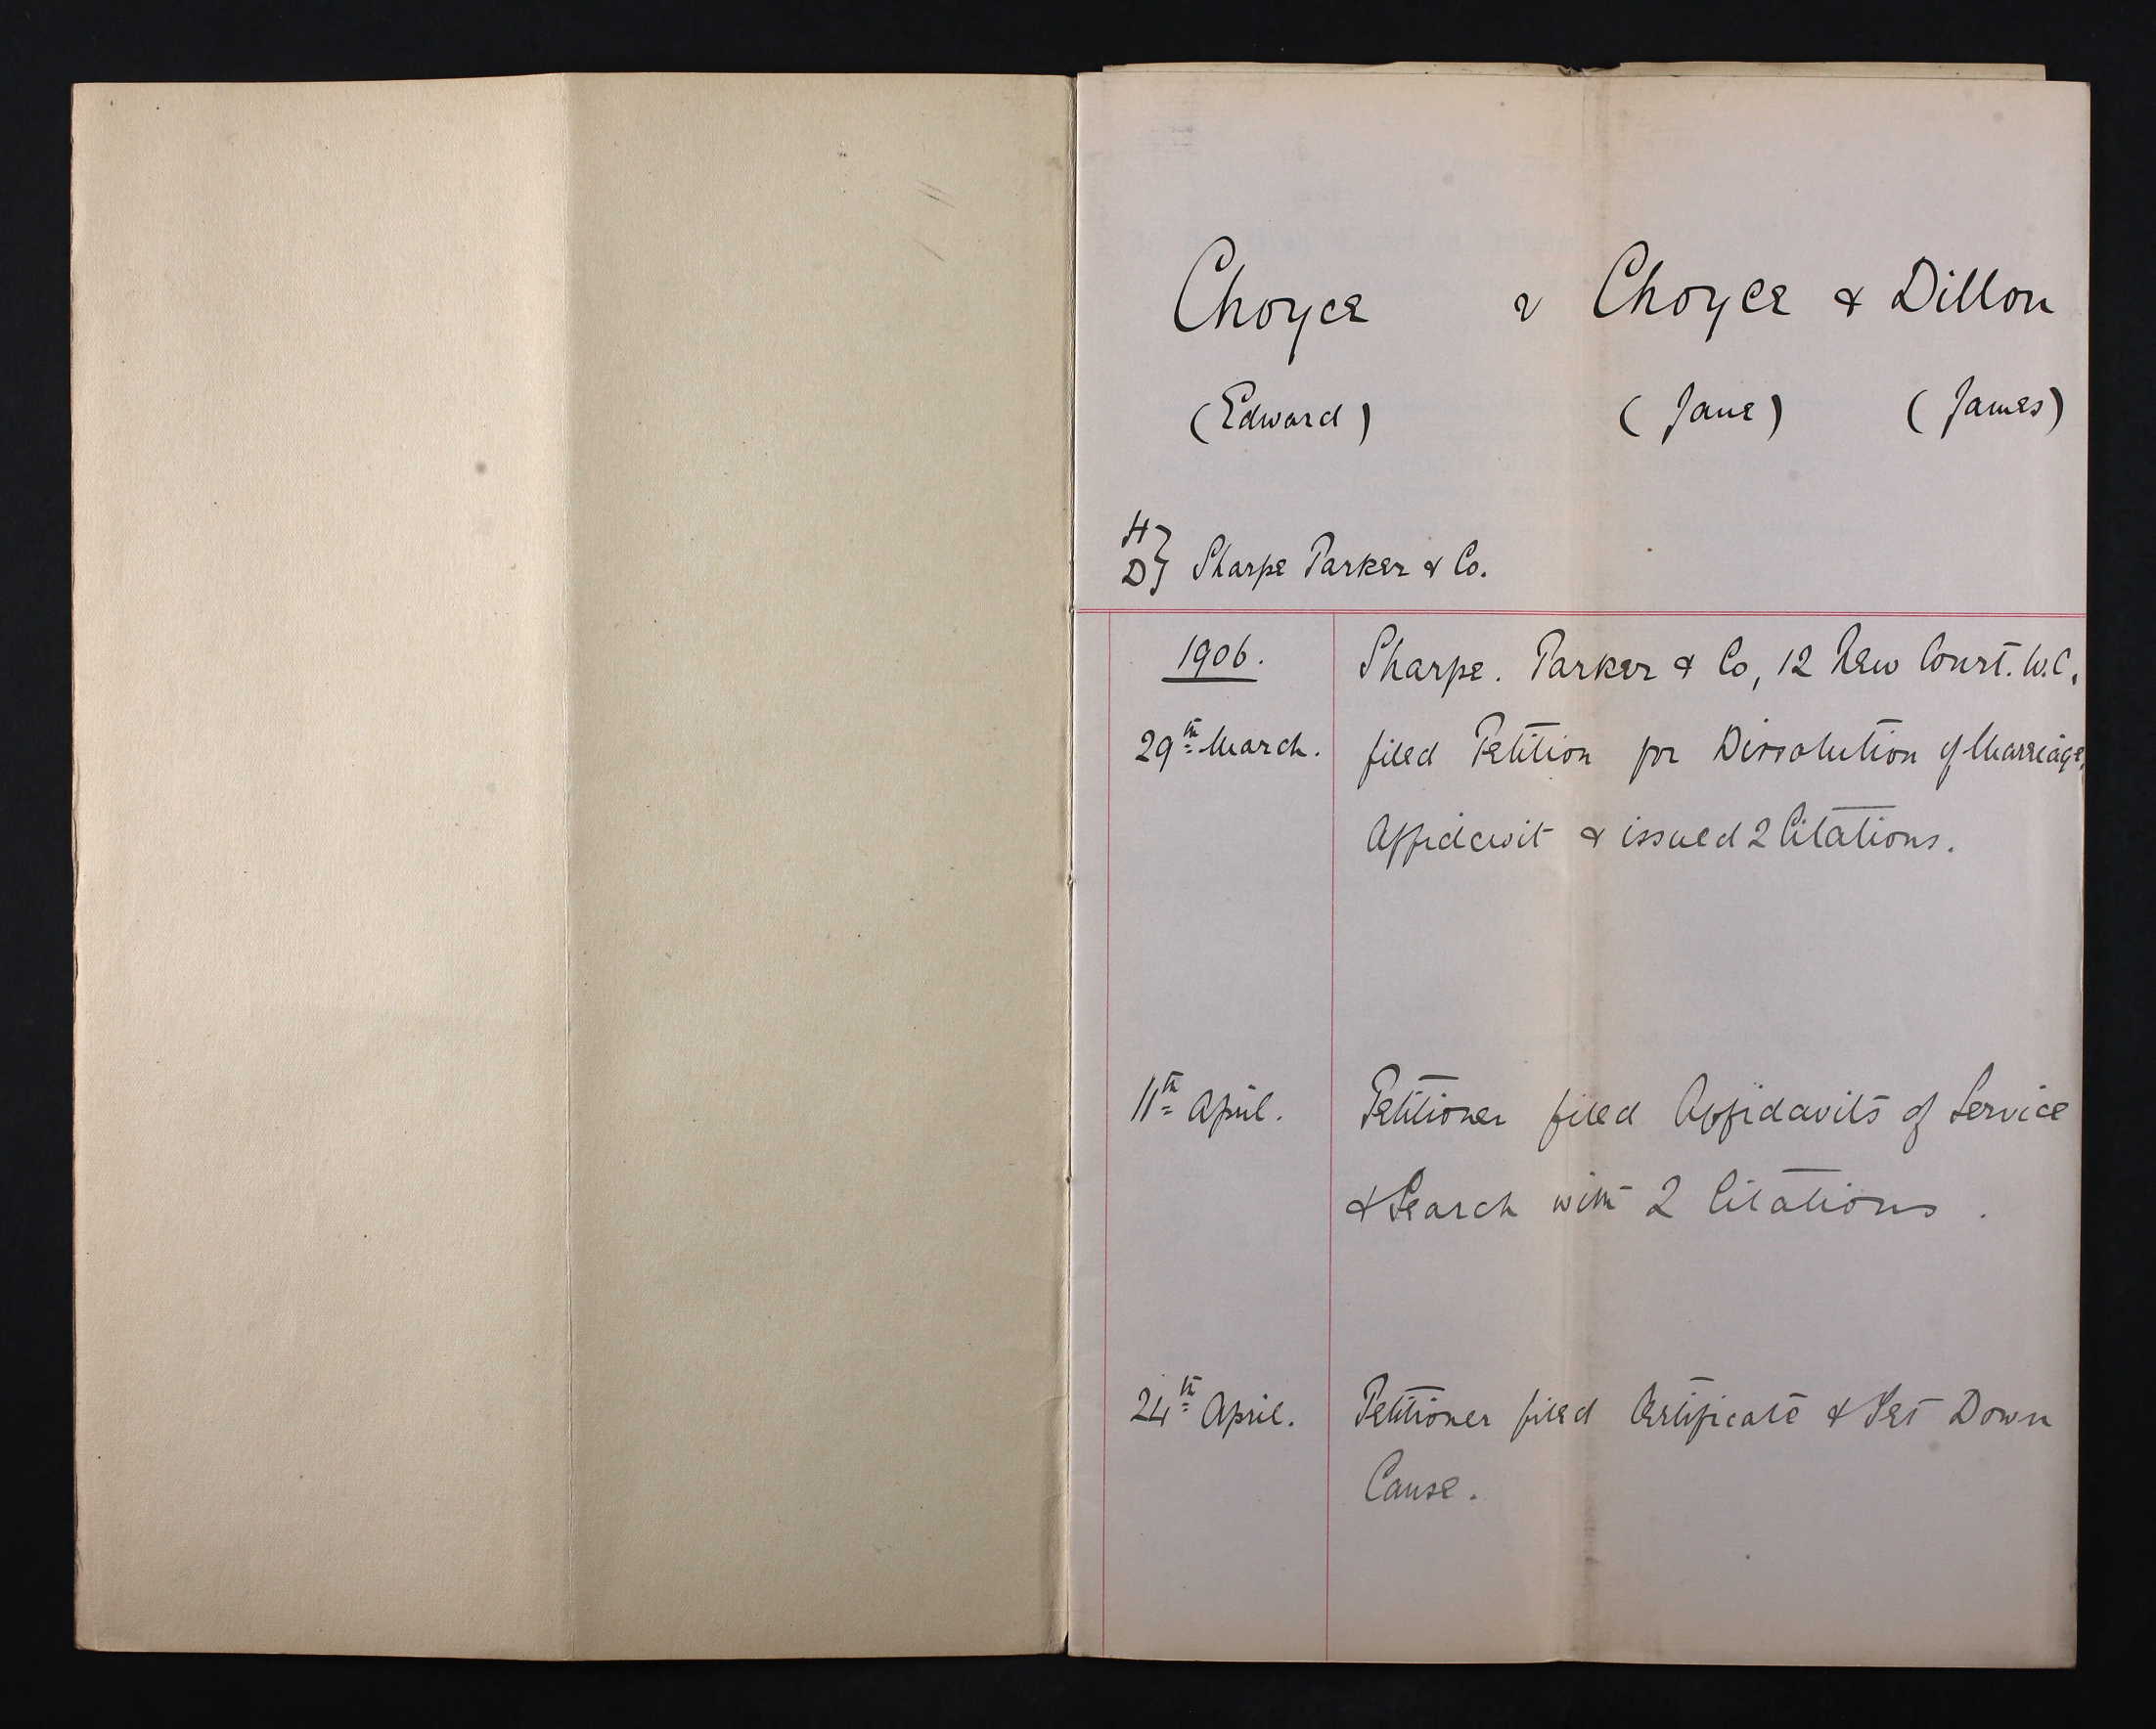 Choyce v Choyce & Dillon
(Edward) (Jane) (James)
H
D} Sharpe Parker & Co.
1906. Sharpe. Parker & Co, 12 New Court. W.C.
29th March. filed Petition for Dissolution of Marriage,
Affidavit & issued 2 Citations.
11th April. Petitioner filed Affidavits of Service
& Search with 2 Citations.
24th April. Petitioner filed Certificate & Set Down
Cause.